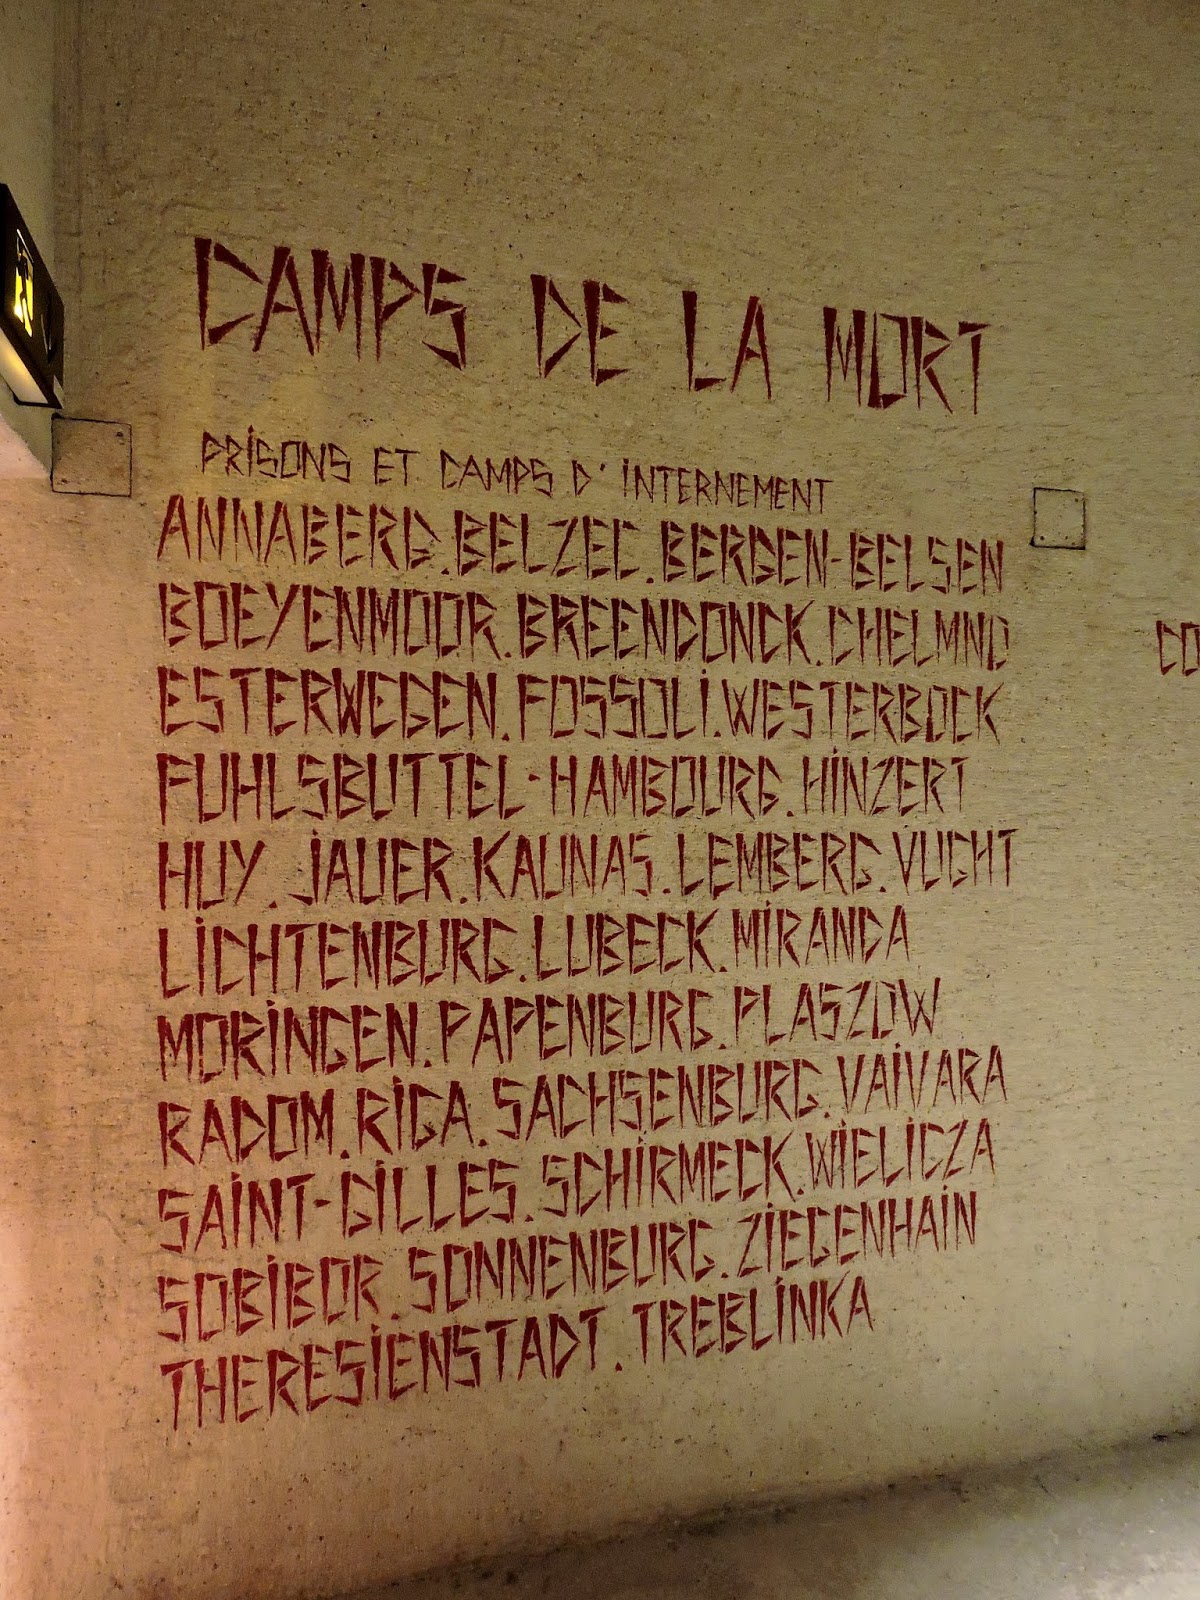 CAMPS DE LA MORT
PRISONS ET CAMPS D'INTERNEMENT
ANNABERG.BELZEC.BERGEN-BELSEN
BOEYENMOOR.BREENDONCK.CHELMNO
ESTERWEGEN.FOSSOLI.WESTERBOCK
FUHLSBUTTEL-HAMBOURG.HINZERT
HUY.JAUER.KAUNAS.LEMBERG.VUGHT
LICHTENBURG.LUBECK.MIRANDA
MORINGEN.PAPENBURG.PLASZOW
RADOM.RIGA.SACHSENBURG.VAIVARA
SAINT-GILLES.SCHIRMECK.WIELICZA
SOBIBOR.SONNENBURG.ZIEGENHAIN
THERESIENSTADT.TREBLINKA